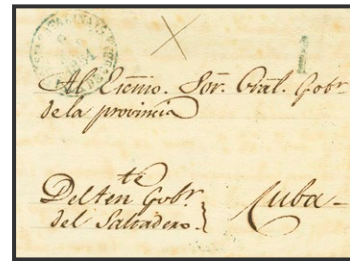 Al Exmo. Sor. Gral. Gobr.
de la provincia
Del ten te Gobr.
del Saltadero.
Cuba-